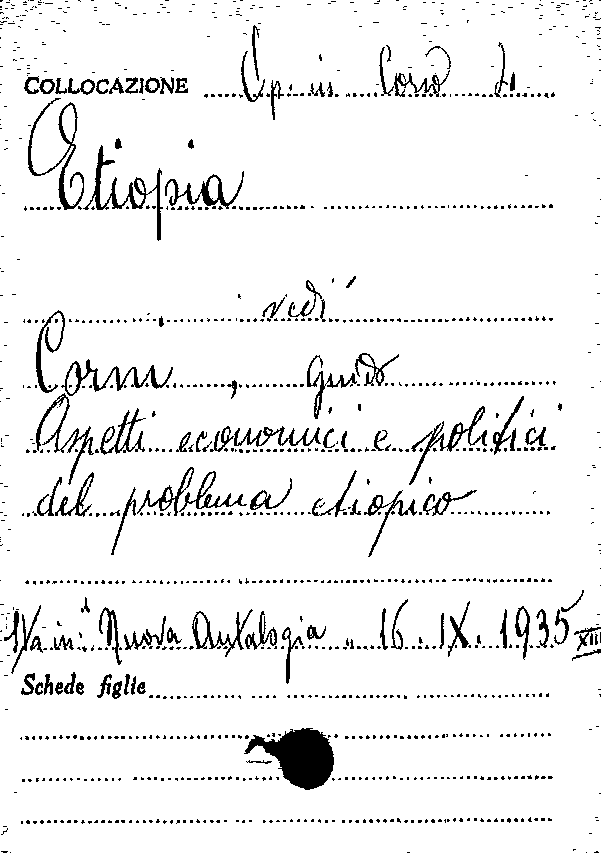 COLLOCAZIONE Op. in Corso
Etiopia
vedi
Corni, Guido
Aspetti economici e politici
del problema etiopico
in: "Nuova Antologia" 16.IX.1935 XIII
Schede figlie